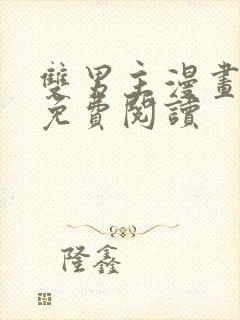 雙男主漫畫
免費閱讀
隆鑫